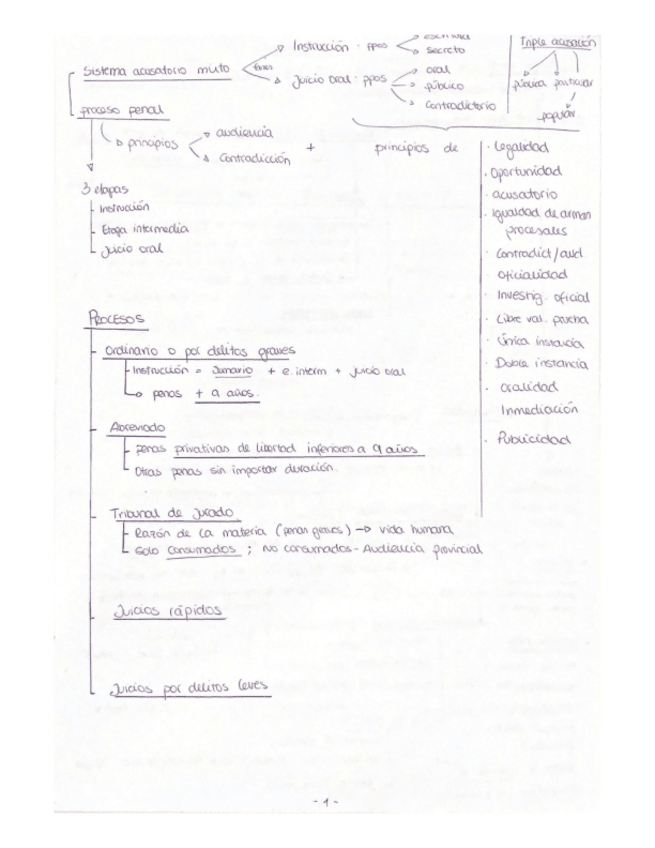 Instrucción · ppos
escritura
secreto
Triple acusación
Sistema acusatorio mixto
fases
Juicio Oral · ppos
oral
público
Contradictorio
pública particular
popular
proceso penal
principios
audiencia
Contradicción
+ principios de
· Legalidad
· Oportunidad
· acusatorio
· Igualdad de armas
procesales
· Contradict/aud.
· Oficialidad
· Investig. oficial
· Libre val. prueba
· Única instancia
· Doble instancia
· Oralidad
Inmediación
· Publicidad
3 etapas
Instrucción
Etapa intermedia
Juicio oral
PROCESOS
Ordinario o por delitos graves
Instrucción = Sumario + e. interm + juicio oral
penas + 9 años.
Abreviado
penas privativas de libertad inferiores a 9 años
Otras penas sin importar duración.
Tribunal de Jurado
Razón de la materia (penas graves) → vida humana
Solo consumados ; No consumados - Audiencia provincial
Juicios rápidos
Juicios por delitos leves
- 1 -